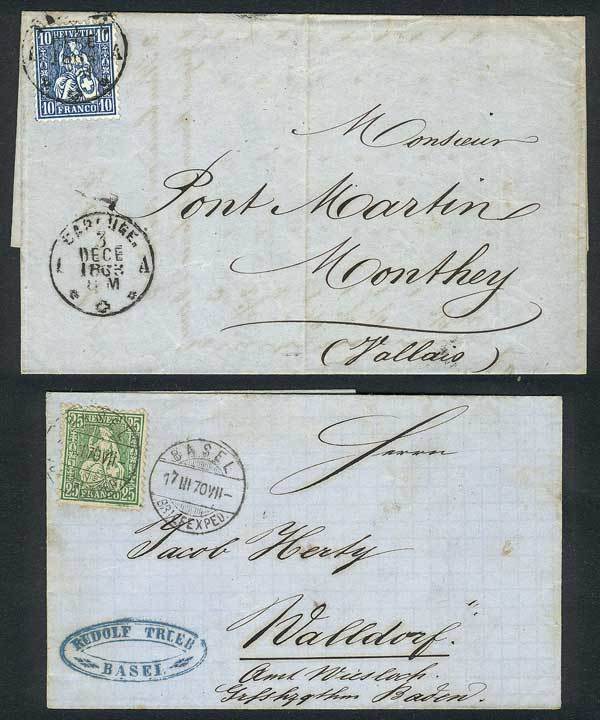 10 HELVETIA 10
10 FRANCO 10
Monsieur
Pont Martin
Monthey
(Vallais)
CAROUGE.
3
DECE
1863
8 M
A A
25 HELVETIA 25
25 FRANCO 25
BASEL
17 III 70 VII-
BRIEFEXPED.
Herrn
Jacob Herty
Walldorf.
Amt Wiesloch.
Baden.
RUDOLF TRUEB
BASEL